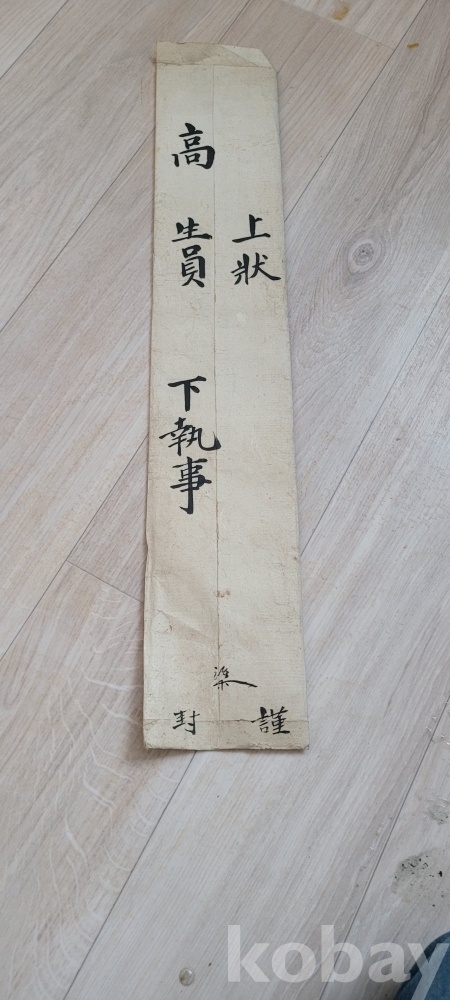 上狀
高 生員 下執事
謹 封
kobay